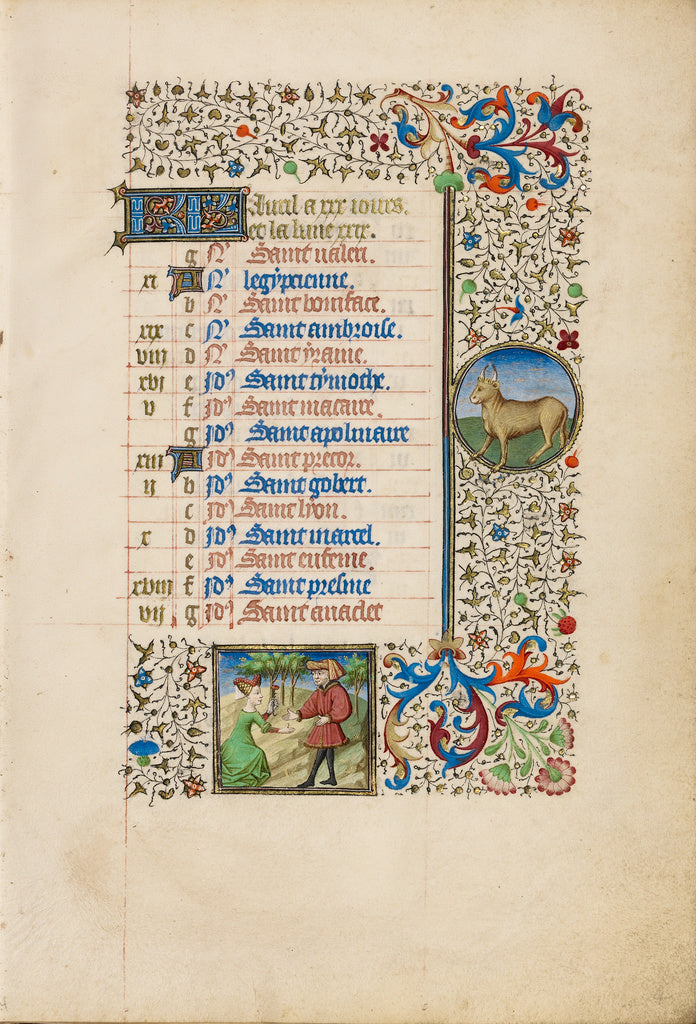 Auril a xxx iours.
et la lune xxix.
g N' Saint ualeri.
xi A N' legypcienne.
b N' Saint boniface.
xix c N' Saint ambroise.
viii d N' Saint yraine.
xvi e Id' Saint tymothe.
v f Id' Saint macaire.
g Id' Saint apolinaire
xiii A Id' Saint precor.
ii b Id' Saint gobert.
c Id' Saint lyon.
x d Id' Saint marcel.
e Id' Sainte eufeme.
xviii f Id' Saint presme
vii g Id' Saint anaclet